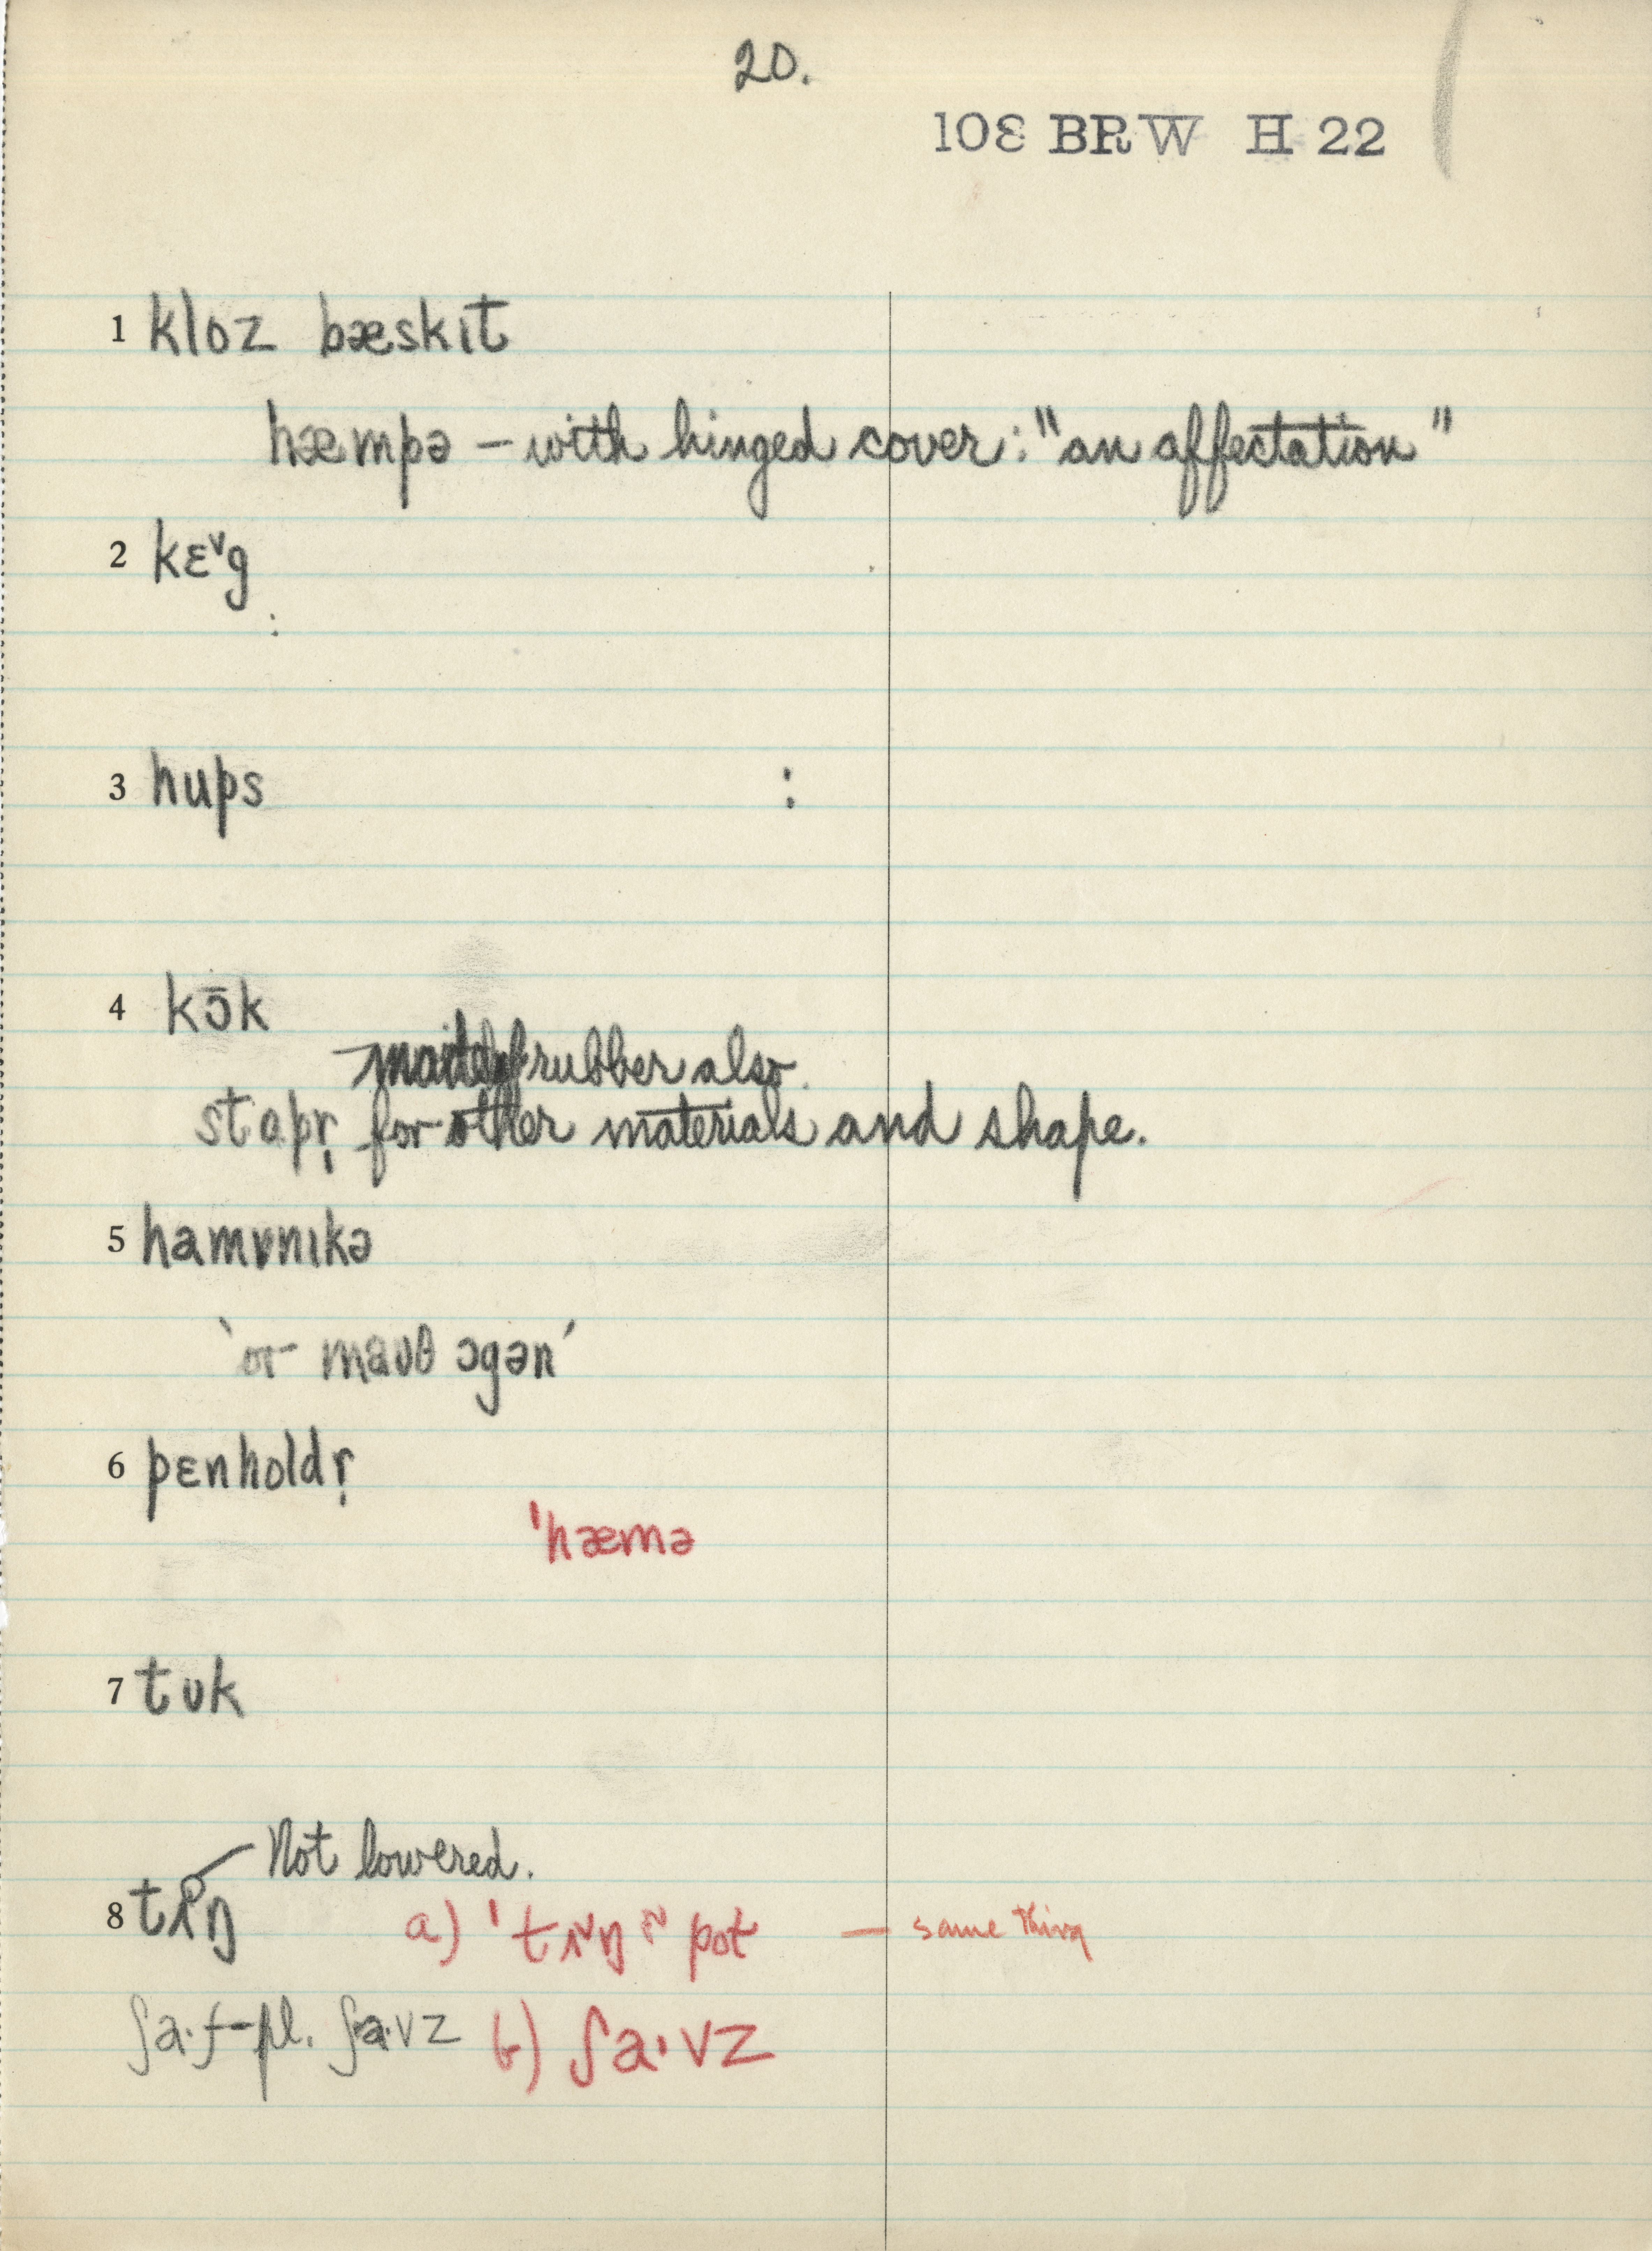 20.
10Ɛ BRW H 22
1 kloz bæskɪt
hæmpə – with hinged cover: "an affectation"
2 kɛ˅g
3 hups :
4 kɔ̄k
made of rubber also.
stapr̩ for other materials and shape.
5 hamɒnɪkə
'or maʊθ ɔgən'
6 pɛnholdr̩
'hæmə
7 tʊk
Not lowered.
8 a) — same thing
ʃa·f – pl. ʃa·vz b) ʃa·vz